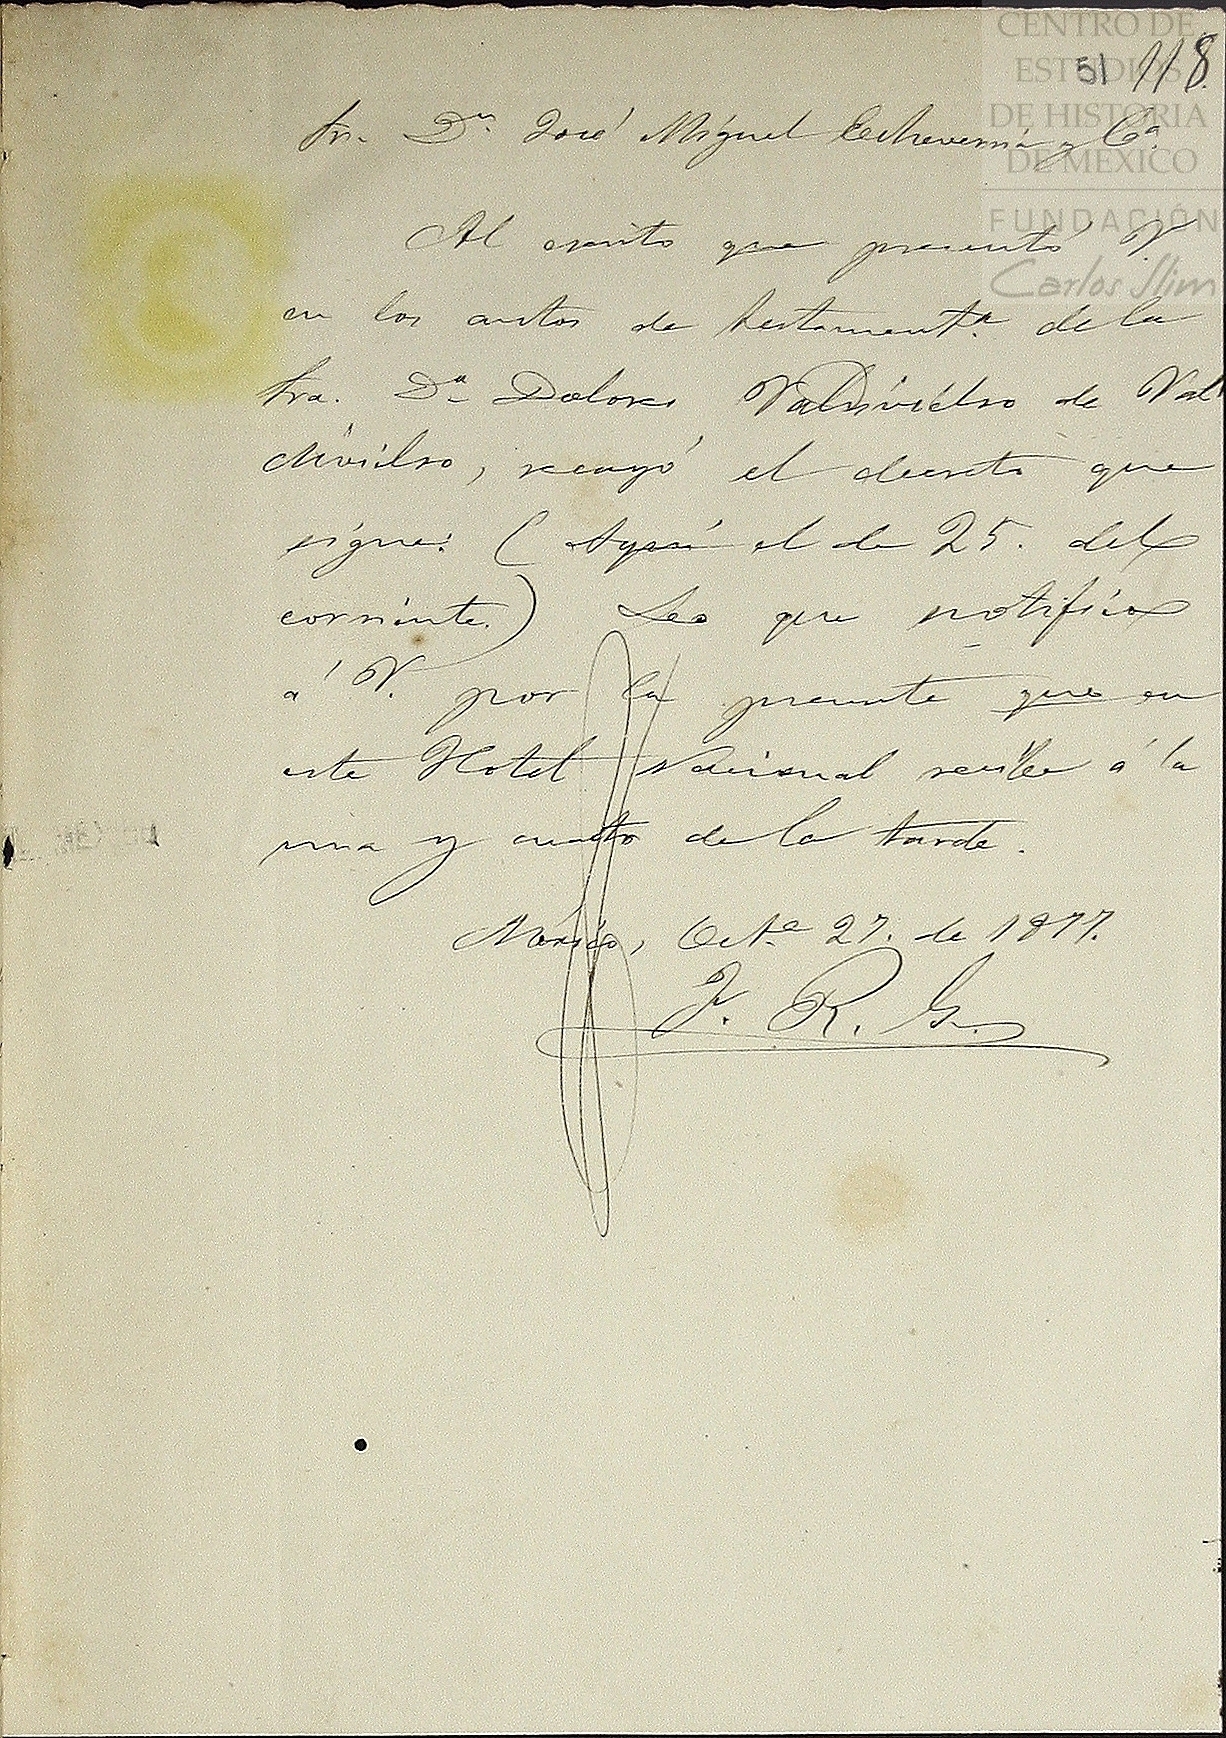 CENTRO DE
ESTUDIOS
DE HISTORIA
DE MEXICO
FUNDACIÓN
Carlos Slim
51 118.
Sr. Dn. José Miguel Echeverria y Ca.
Al escrito que presentó V.
en los autos de testamenta. de la
Sra. Da. Dolores Valdivielso de Val
divielso, recayó el decreto que
sigue: ( Aquí el de 25. del
corriente.) Lo que notifico
á V. por la presente que en
este Hotel Nacional recibe á la
una y cuarto de la tarde.
México, Octe. 27. de 1877.
J. R. G.